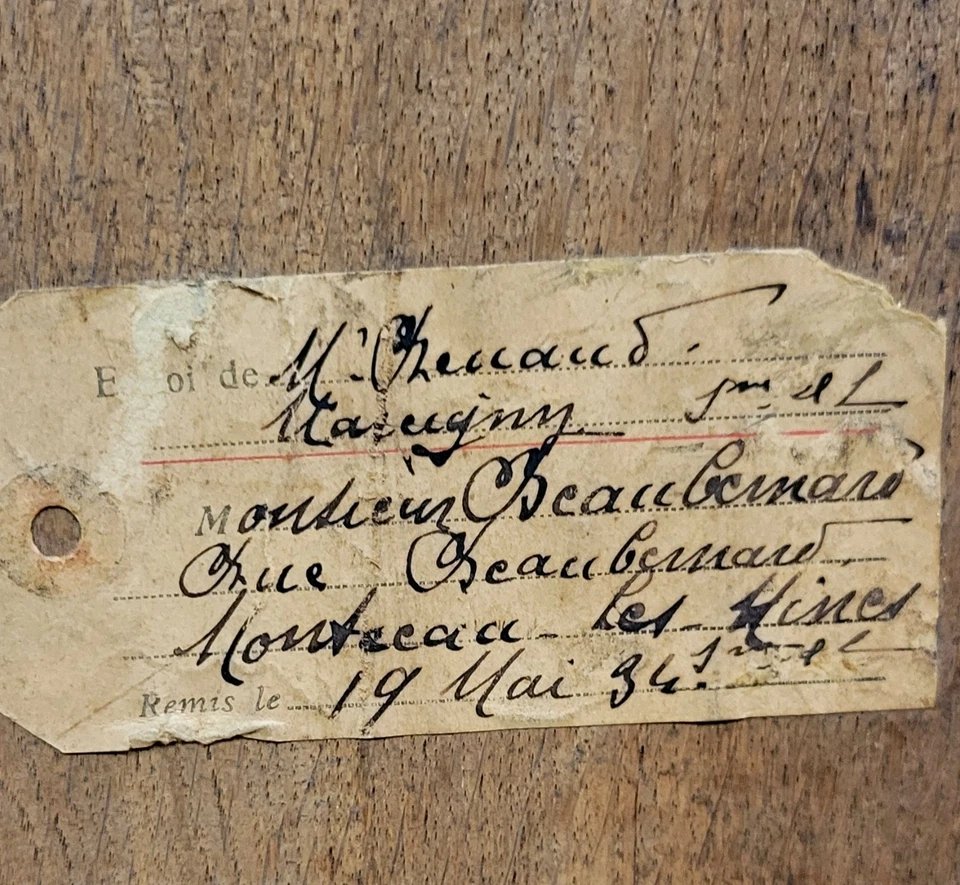 Envoi de Mr Renaud.
Marigny Sne et L
Monsieur Beaubernard
Rue Beaubernard
Montceau-les-Mines
Remis le 19 Mai 34. Sne et L